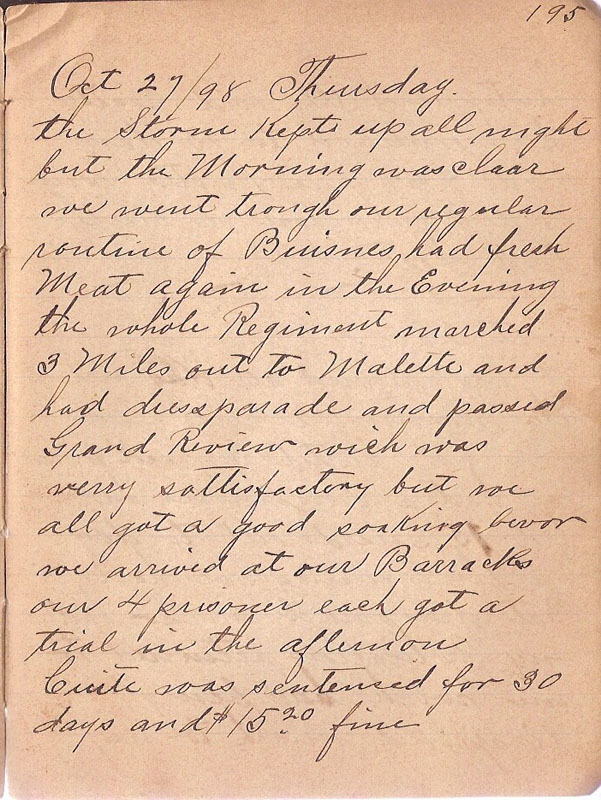 195
Oct 27/98 Thursday.
the Storm Kepts up all night
but the Morning was claar
we went trough our regular
routine of Buisnes, had fresh
Meat again in the Evening
the whole Regiment marched
3 Miles out to Malette and
had dressparade and passed
Grand Review wich was
verry sattisfactory but we
all got a good soaking bevor
we arrived at our Barracks
our 4 prisoner each got a
trial in the afternon
was sentensed for 30
days and $15.20 fine